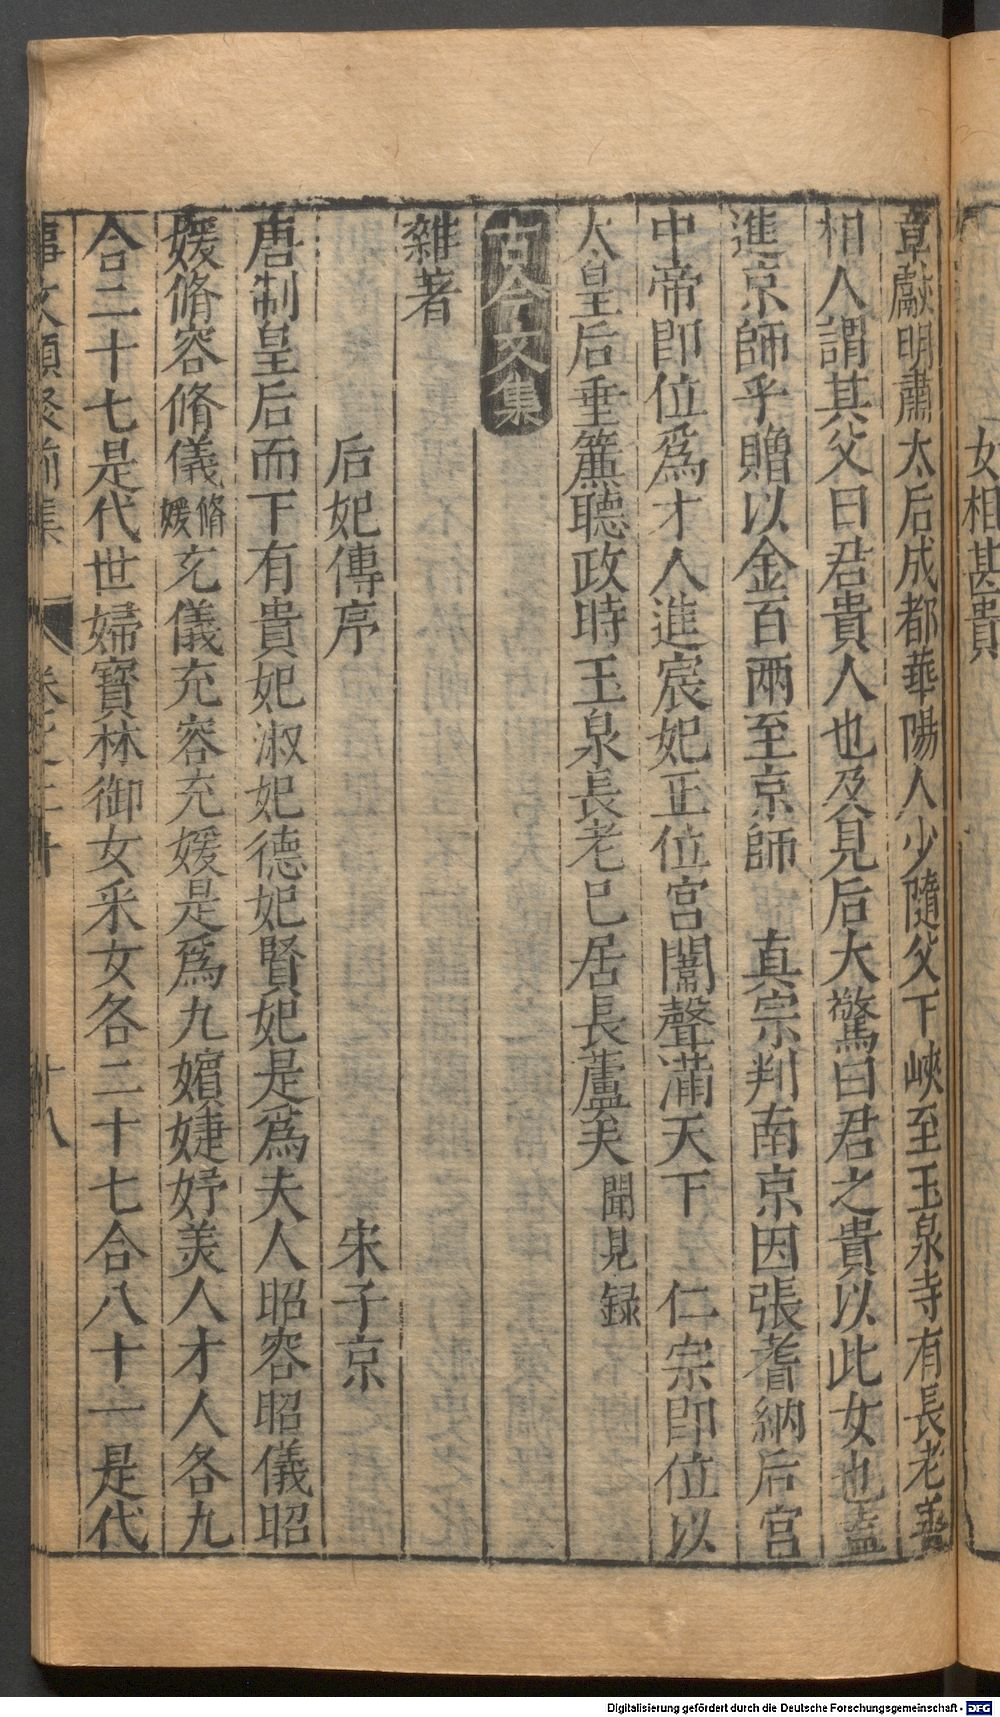 女相甚貴
章獻明肅太后成都華陽人少隨父下峽至玉泉寺有長老善
相人謂其父曰君貴人也及見后大驚曰君之貴以此女也盍
進京師乎贈以金百兩至京師 真宗判南京因張耆納后宮
中帝即位爲才人進宸妃正位宮闈聲滿天下 仁宗即位以
太皇后垂簾聽政時玉泉長老已居長蘆矣 聞見録
古今文集
雜著
后妃傳序 宋子京
唐制皇后而下有貴妃淑妃德妃賢妃是爲夫人昭容昭儀昭
媛脩容脩儀脩媛充儀充容充媛是爲九嬪婕妤美人才人各九
合二十七是代世婦寶林御女采女各二十七合八十一是代
事文類聚前集 十八
Digitalisierung gefördert durch die Deutsche Forschungsgemeinschaft - DFG